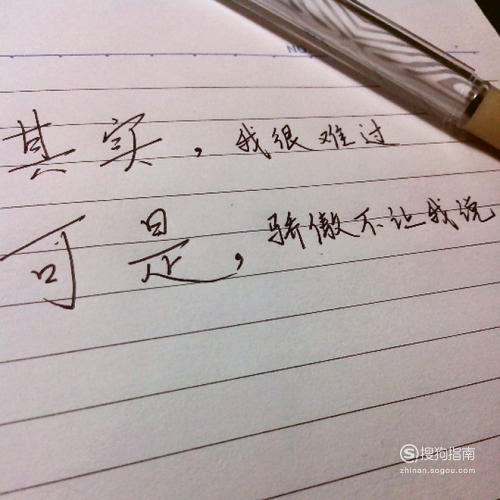 No
其实，我很难过
可是，骄傲不让我说
搜狗指南
zhinan.sogou.com